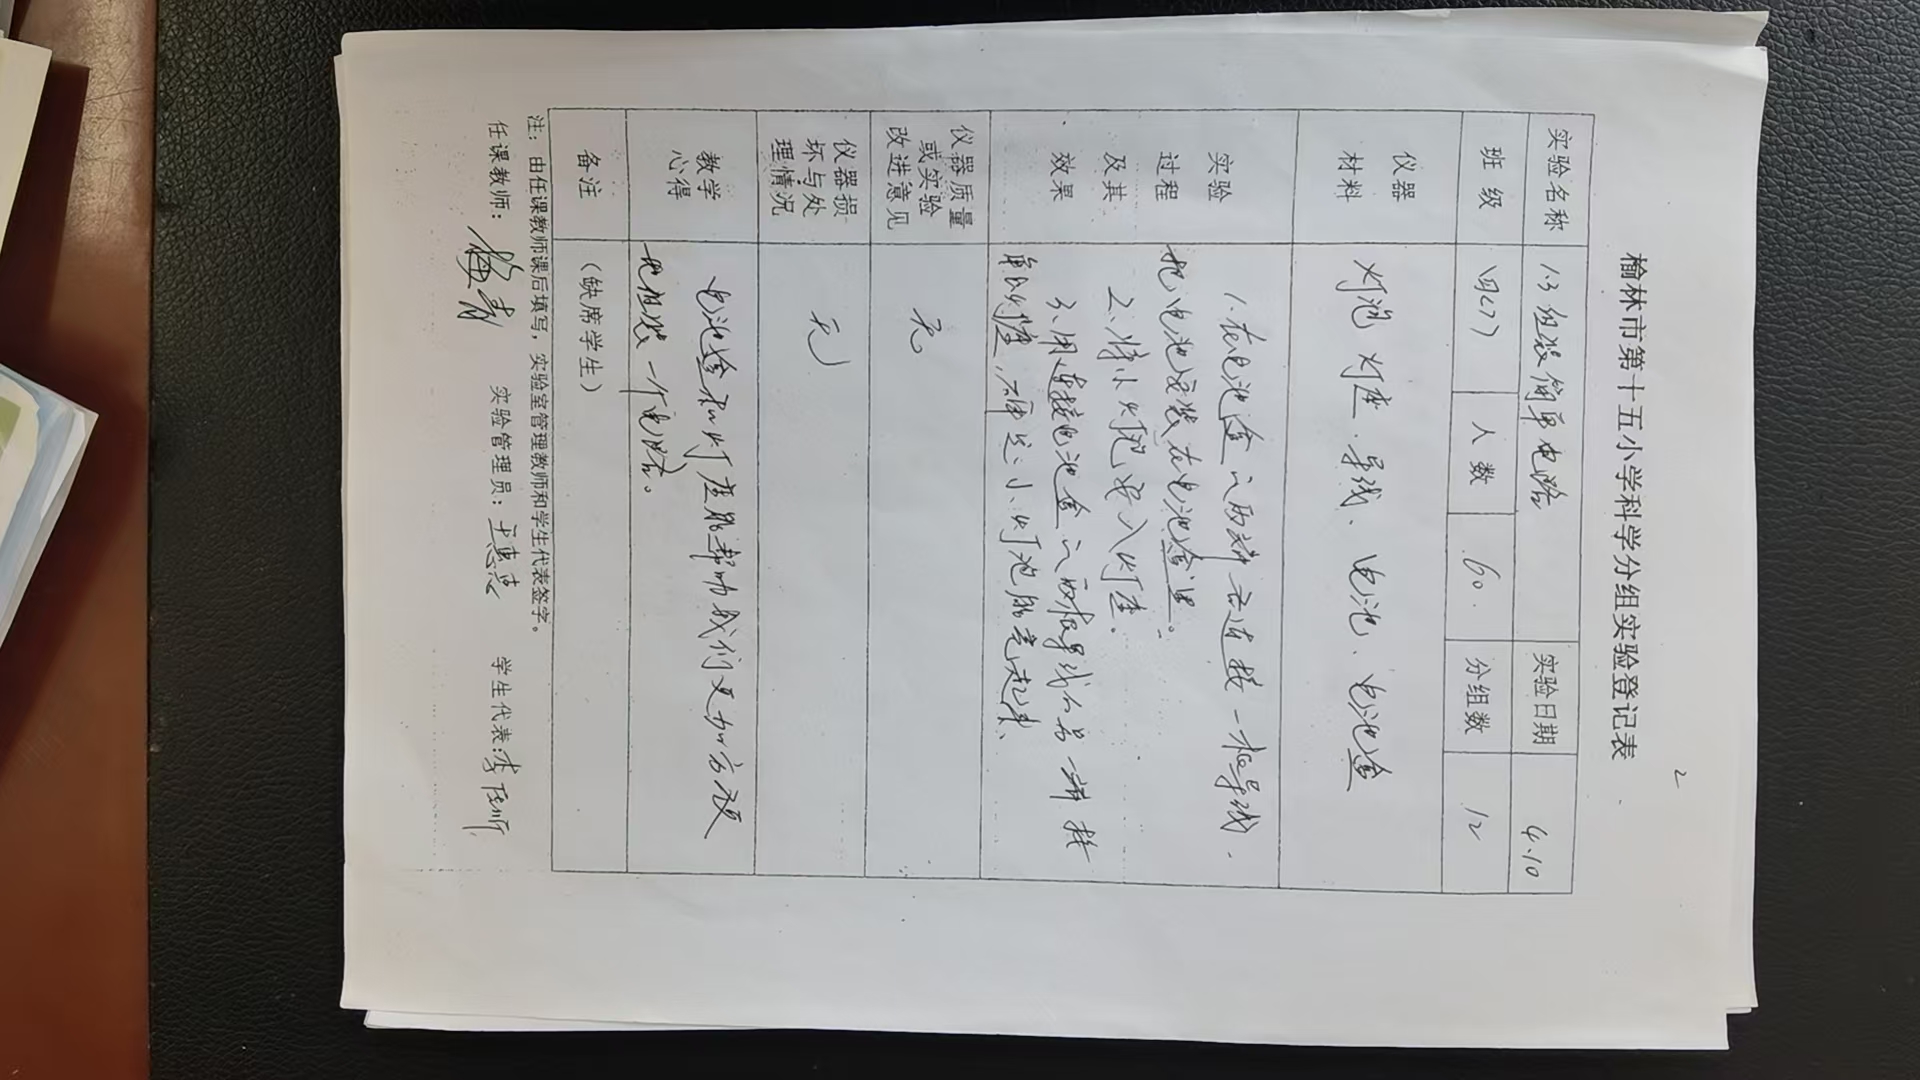 2
榆林市第十五小学科学分组实验登记表
实验名称 1.3组装简单电路 实验日期 4.10
班级 四(7) 人数 60. 分组数 12
仪器
材料
灯泡 灯座、导线、电池、电池盒
实验
过程
及其
效果
1.在电池盒的两端各连接一根导线.
把电池安装在电池盒里。
2.将小灯泡安入灯座.
3.用连接电池盒的两根导线的另一端接
灯座,确定小灯泡能亮起来、
仪器质量
或实验
改进意见
无
仪器损
坏与处
理情况
无
教学
心得
电池盒和灯座能帮助我们更加方便
地组装一个电路。
备注 (缺席学生)
注:由任课教师课后填写,实验室管理教师和学生代表签字。
任课教师: 实验管理员: 学生代表:李